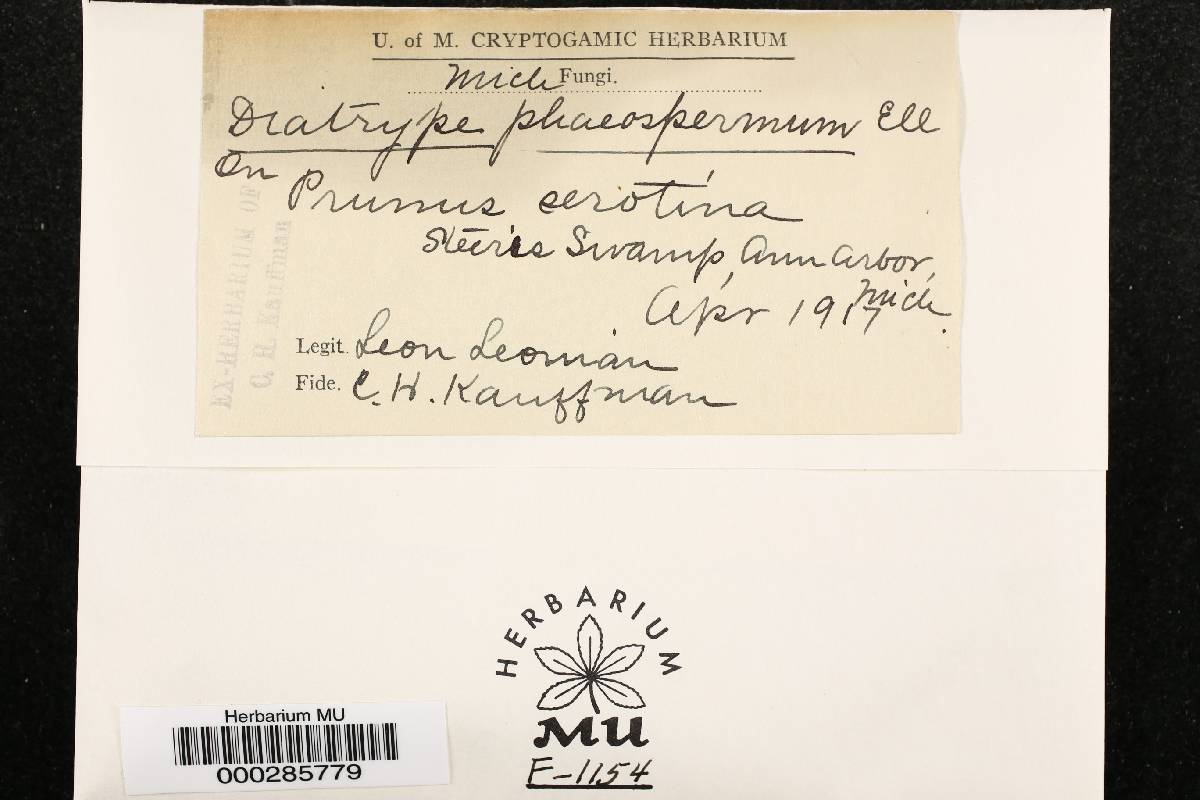 U. of M. CRYPTOGAMIC HERBARIUM
Mich Fungi.
Diatrype phaeospermum Ell
On Prunus serotina
Steeres Swamp, Ann Arbor,
Mich.
Apr 1917
Legit. Leon Leonian
Fide. C. H. Kauffman
EX-HERBARIUM OF
C. H. Kauffman
HERBARIUM
MU
F-1154
Herbarium MU
000285779